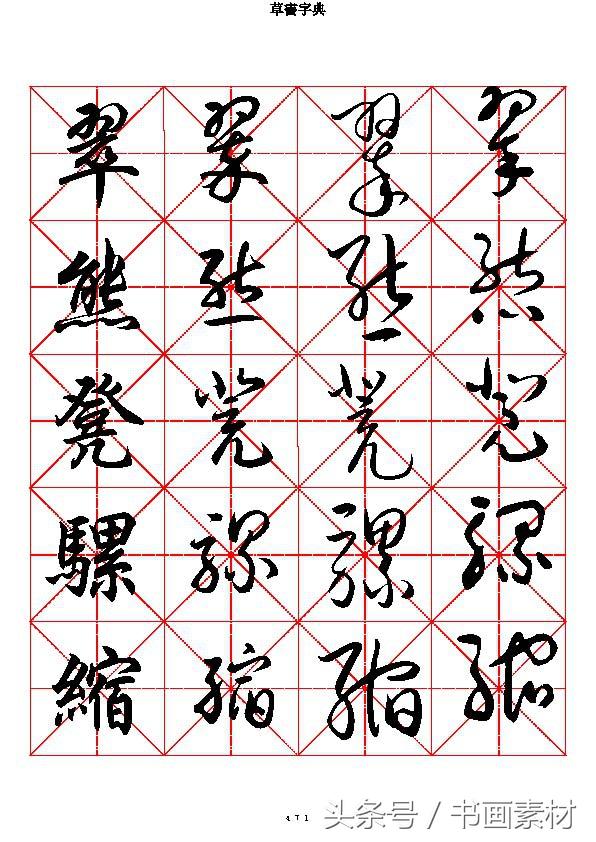 草書字典
翠 翠 翠 翠
熊 熊 熊 熊
凳 凳 凳 凳
騾 騾 騾 騾
縮 縮 縮 縮
471
头条号 / 书画素材